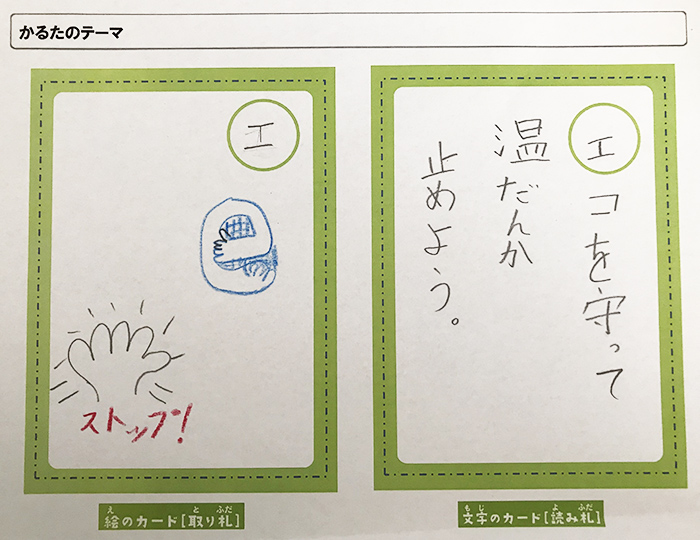 かるたのテーマ
エ
ストップ!
絵のカード[取り札]
エ
コを守って
温だんか
止めよう。
文字のカード[読み札]